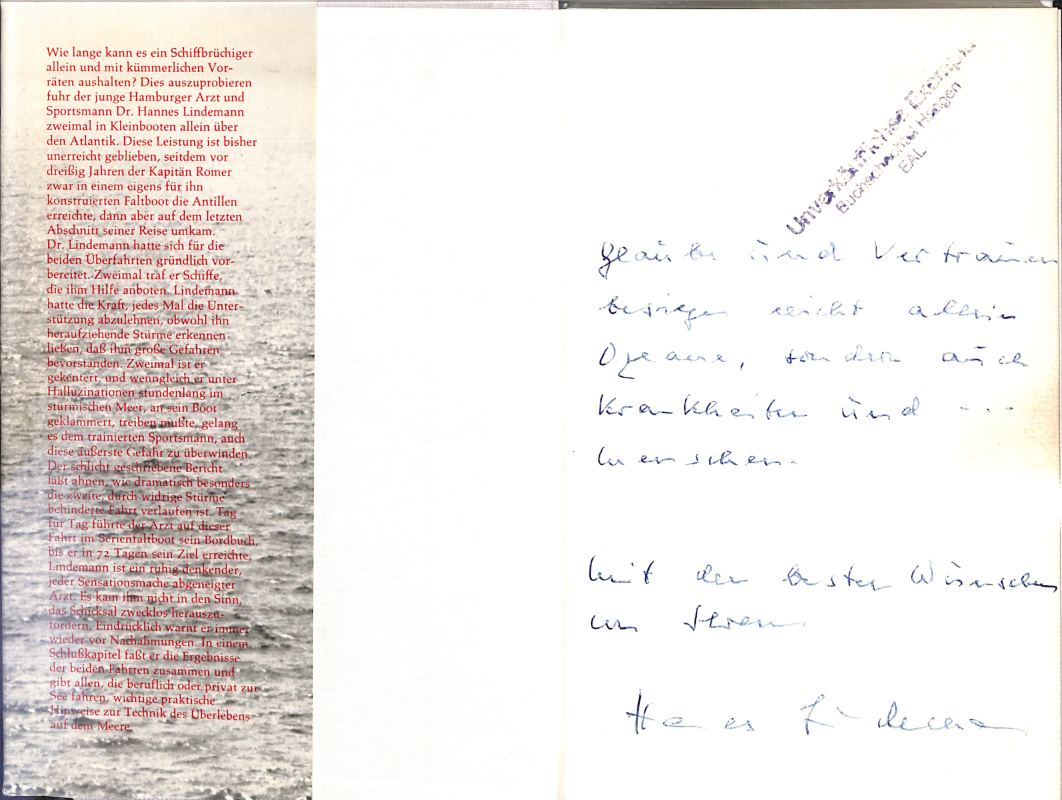 Wie lange kann es ein Schiffbrüchiger
allein und mit kümmerlichen Vor-
räten aushalten? Dies auszuprobieren
fuhr der junge Hamburger Arzt und
Sportsmann Dr. Hannes Lindemann
zweimal in Kleinbooten allein über
den Atlantik. Diese Leistung ist bisher
unerreicht geblieben, seitdem vor
dreißig Jahren der Kapitän Romer
zwar in einem eigens für ihn
konstruierten Faltboot die Antillen
erreichte, dann aber auf dem letzten
Abschnitt seiner Reise umkam.
Dr. Lindemann hatte sich für die
beiden Überfahrten gründlich vor-
bereitet. Zweimal traf er Schiffe,
die ihm Hilfe anboten. Lindemann
hatte die Kraft, jedes Mal die Unter-
stützung abzulehnen, obwohl ihn
heraufziehende Stürme erkennen
ließen, daß ihm große Gefahren
bevorstanden. Zweimal ist er
gekentert, und wenngleich er unter
Halluzinationen stundenlang im
stürmischen Meer, an sein Boot
geklammert, treiben mußte, gelang
es dem trainierten Sportsmann, auch
diese äußerste Gefahr zu überwinden.
Der schlicht geschriebene Bericht
läßt ahnen, wie dramatisch besonders
die zweite, durch widrige Stürme
behinderte Fahrt verlaufen ist. Tag
für Tag führte der Arzt auf dieser
Fahrt im Serienfaltboot sein Bordbuch,
bis er in 72 Tagen sein Ziel erreichte.
Lindemann ist ein ruhig denkender,
jeder Sensationsmache abgeneigter
Arzt. Es kam ihm nicht in den Sinn,
das Schicksal zwecklos herauszu-
fordern. Eindrücklich warnt er immer
wieder vor Nachahmungen. In einem
Schlußkapitel faßt er die Ergebnisse
der beiden Fahrten zusammen und
gibt allen, die beruflich oder privat zur
See fahren, wichtige praktische
Hinweise zur Technik des Überlebens
auf dem Meere.
Unverkäufliches Exemplar
Buchschachtel Hangen
EAL
Glaube und Vertrauen
besiegen nicht allein
Ozeane, sondern auch
Krankheiten und ...
Menschen.
Mit den besten Wünschen
Hannes Lindemann